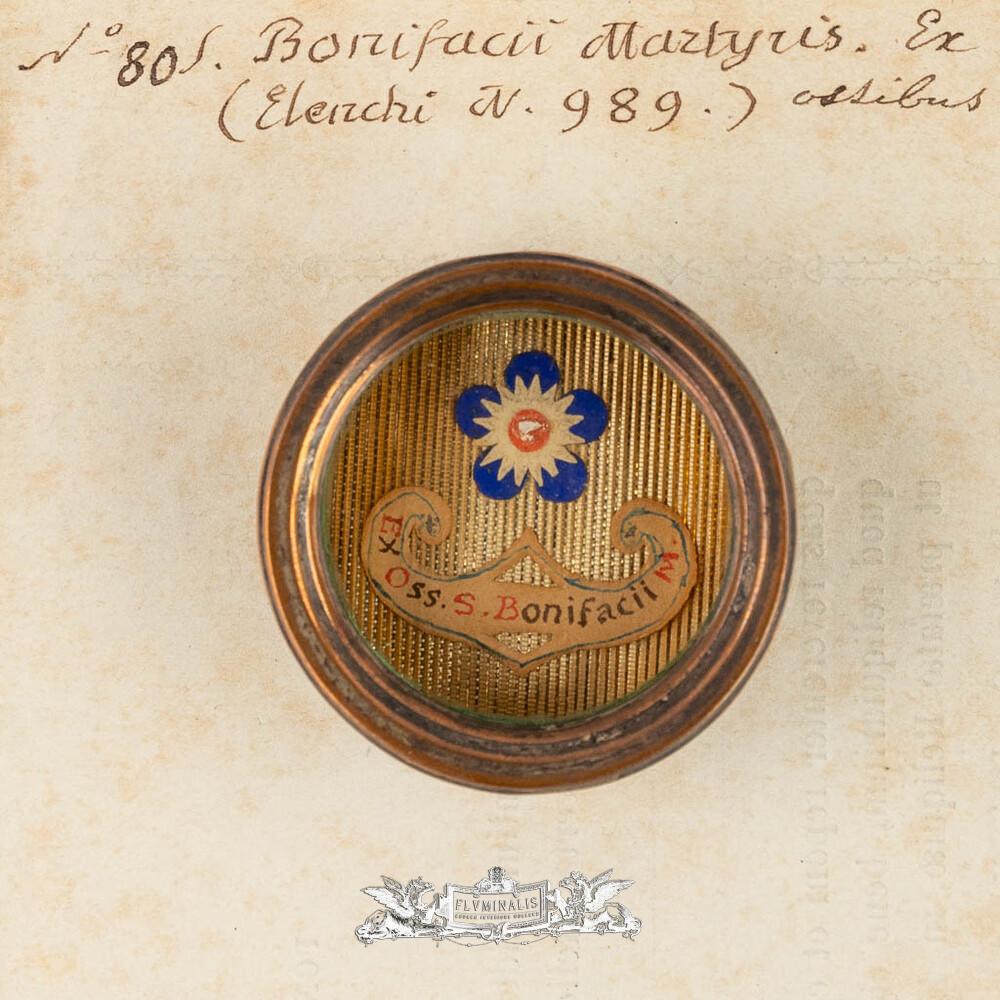 No 80 S. Bonifacii Martyris. Ex
(Elenchi N. 989.) ossibus
Ex Oss. S. Bonifacii M.
FLVMINALIS